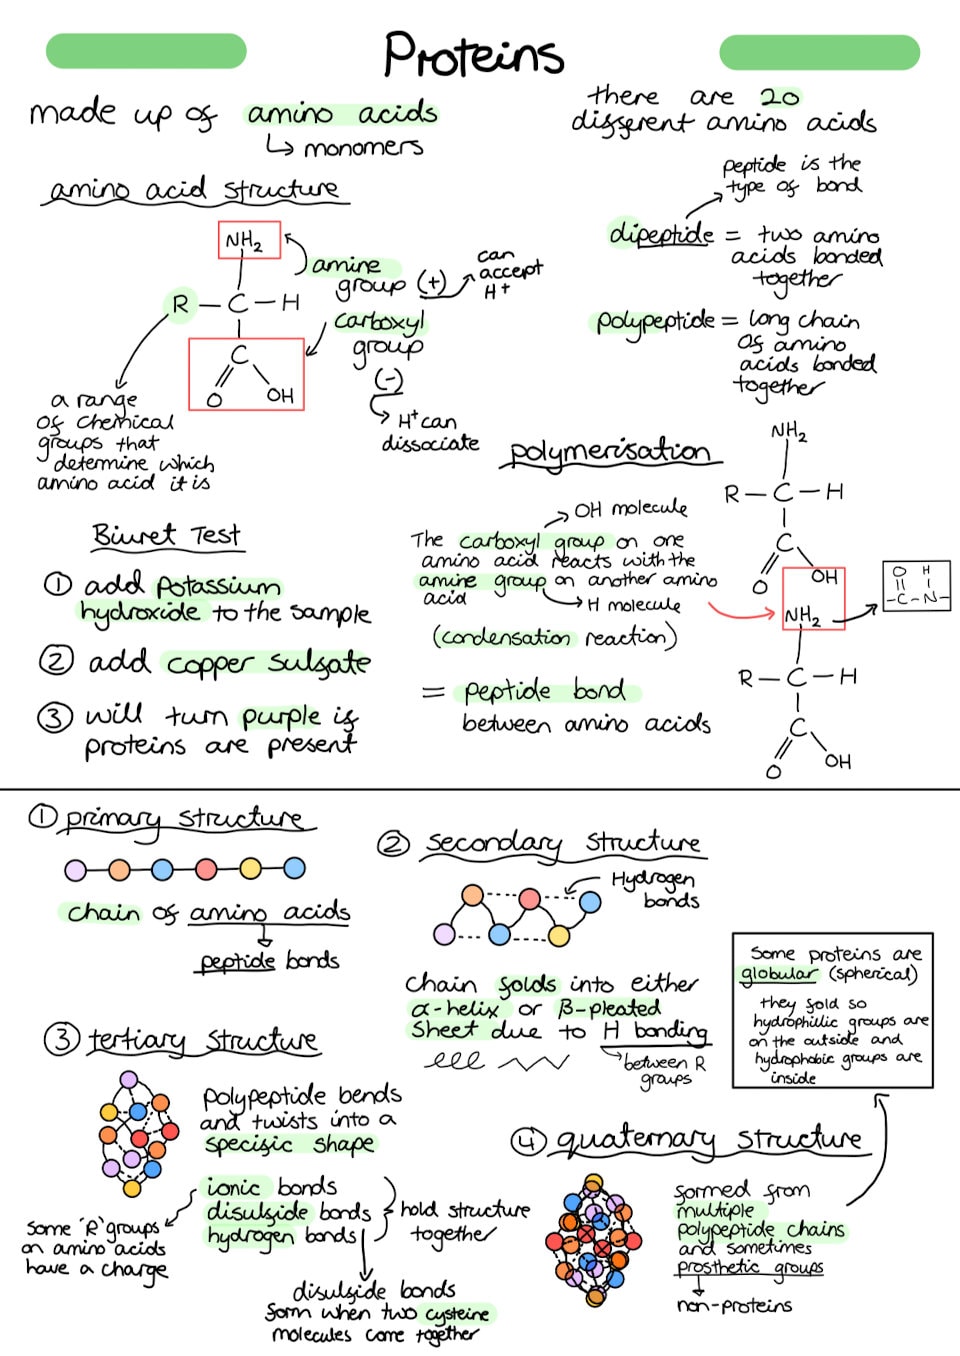 Proteins
made up of amino acids
↳ monomers
there are 20
different amino acids
peptide is the
type of bond
dipeptide = two amino
acids bonded
together
polypeptide = long chain
of amino
acids bonded
together
amino acid structure
NH₂
R – C – H
C
O
OH
amine
group (+)
can
accept
H⁺
carboxyl
group
(-)
H⁺ can
dissociate
a range
of chemical
groups that
determine which
amino acid it is
Biuret Test
① add potassium
hydroxide to the sample
② add copper sulfate
③ will turn purple if
proteins are present
polymerisation
OH molecule
The carboxyl group on one
amino acid reacts with the
amine group on another amino
acid
H molecule
(condensation reaction)
= peptide bond
between amino acids
NH₂
R – C – H
C
O
OH
NH₂
R – C – H
C
O
OH
O H
-C-N-
① primary structure
chain of amino acids
peptide bonds
② secondary structure
Hydrogen
bonds
chain folds into either
α-helix or β-pleated
sheet due to H bonding
between R
groups
Some proteins are
globular (spherical)
they fold so
hydrophillic groups are
on the outside and
hydrophobic groups are
inside
③ tertiary structure
polypeptide bends
and twists into a
specific shape
ionic bonds
disulfide bonds
hydrogen bonds
hold structure
together
some 'R' groups
on amino acids
have a charge
disulfide bonds
form when two cysteine
molecules come together
④ quaternary structure
formed from
multiple
polypeptide chains
and sometimes
prosthetic groups
non-proteins